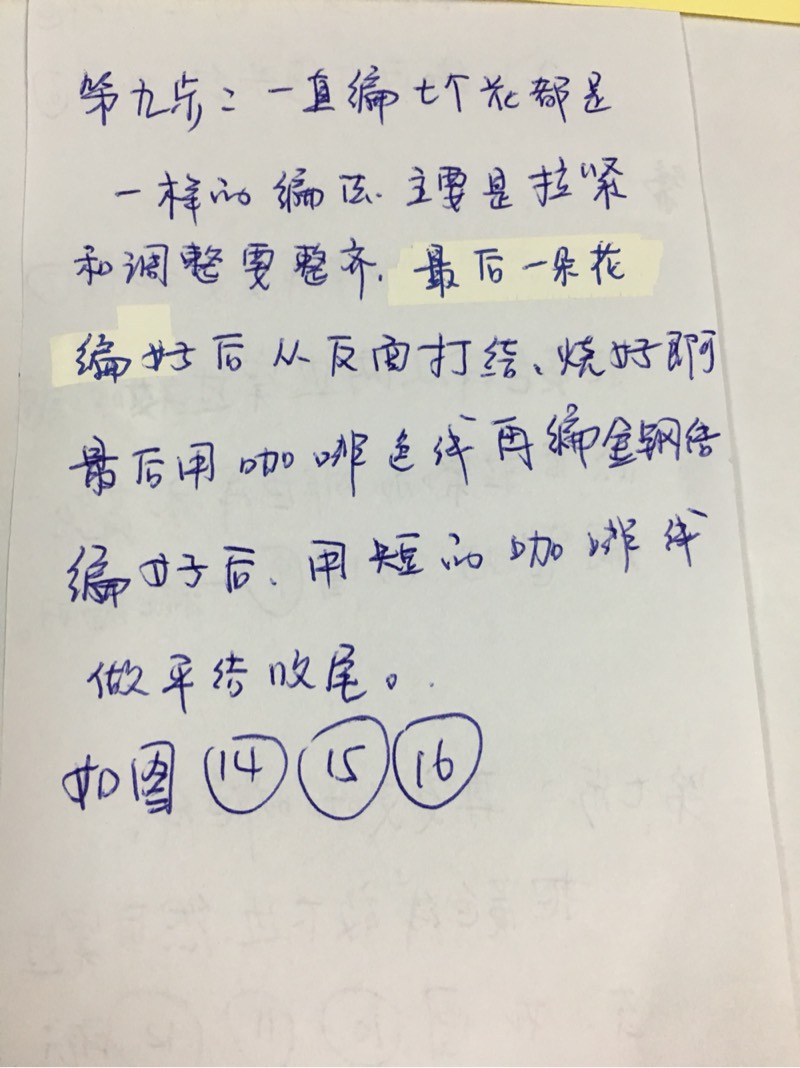 第九步：一直编七个花都是
一样的编法.主要是拉紧
和调整要整齐.最后一朵花
编好后从反面打结、烧好即可
最后用咖啡色线再编金钢结
编好后.用短的咖啡线
做平结收尾。
如图 ⑭ ⑮ ⑯